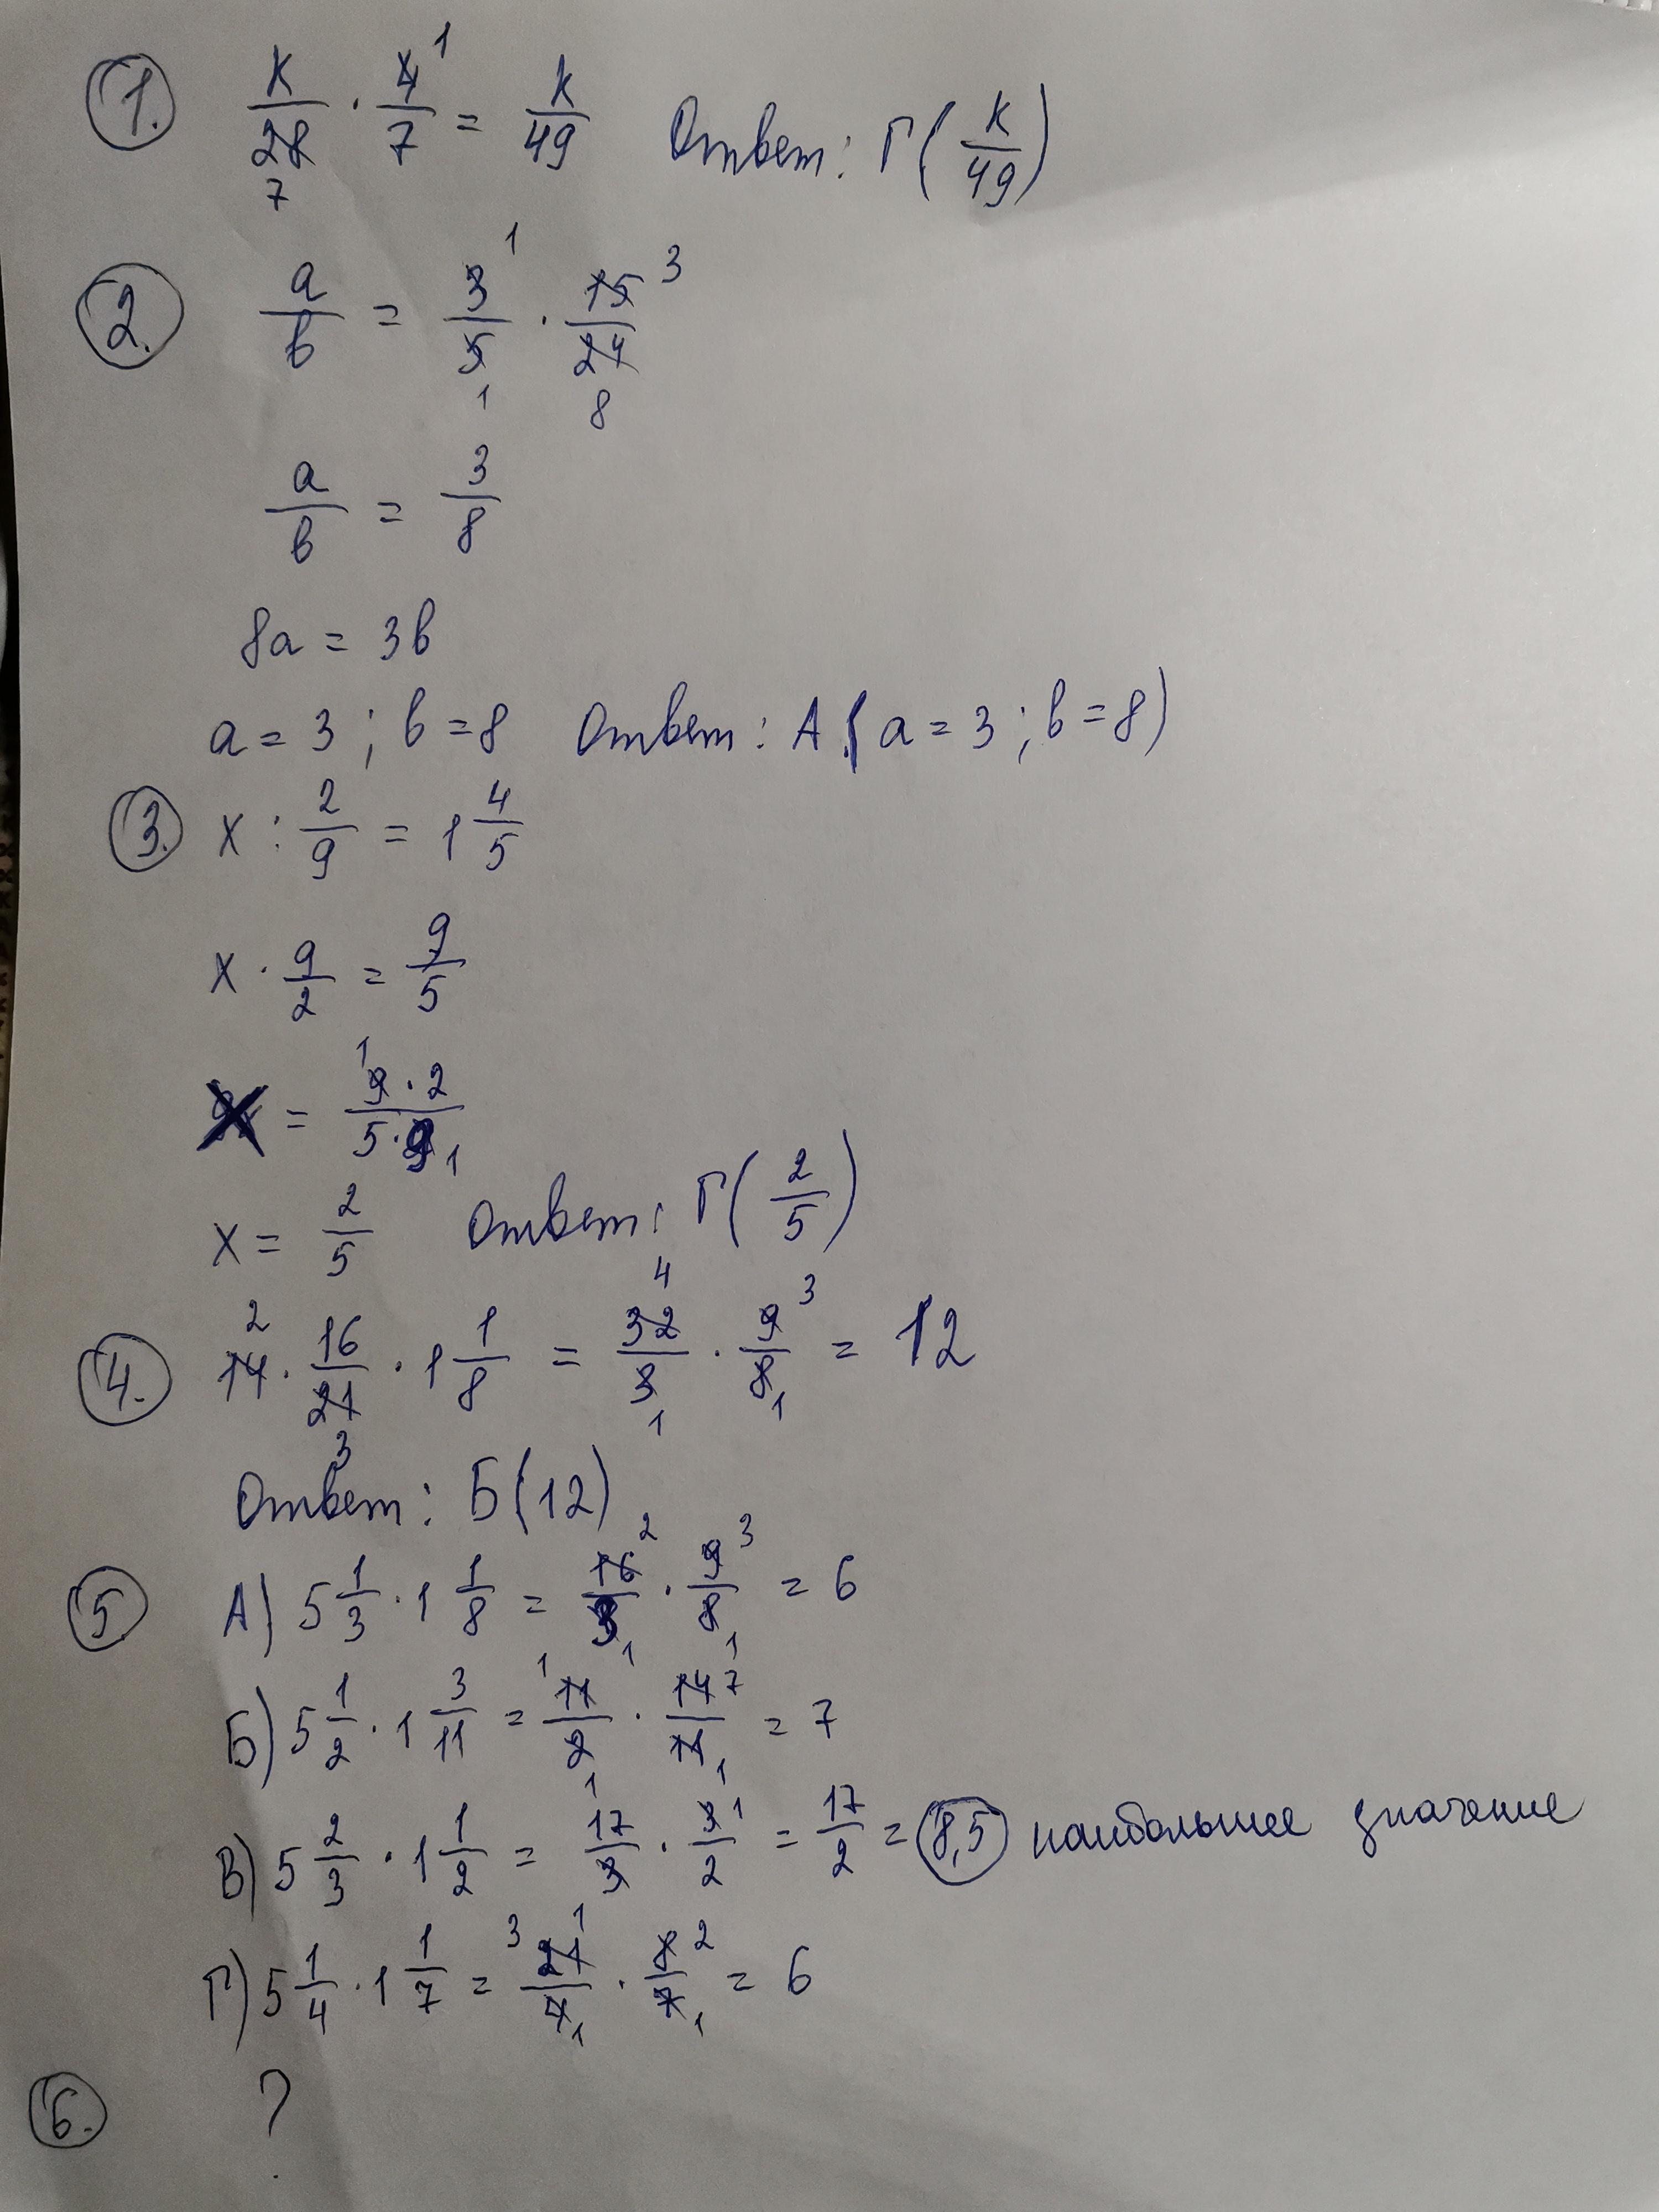 1. k/28 · 4/7 = k/49 Ответ: Г(k/49)
1
7
2. a/b = 3/5 · 15/24
1 3
1 8
a/b = 3/8
8a = 3b
a = 3 ; b = 8 Ответ: А.(a = 3 ; b = 8)
3. x : 2/9 = 1 4/5
x · 9/2 = 9/5
x = 9 · 2/5 · 9
1
1
x = 2/5 Ответ: Г(2/5)
4. 14 · 16/21 · 1 1/8 = 32/3 · 9/8 = 12
2 4 3
3 1 1
Ответ: Б(12)
5 А) 5 1/3 · 1 1/8 = 16/3 · 9/8 = 6
2 3
1 1
Б) 5 1/2 · 1 3/11 = 11/2 · 14/11 = 7
1 7
1 1
В) 5 2/3 · 1 1/2 = 17/3 · 3/2 = 17/2 = 8,5 наибольшее значение
1
Г) 5 1/4 · 1 1/7 = 21/4 · 8/7 = 6
3 1 2
1 1
6. ?